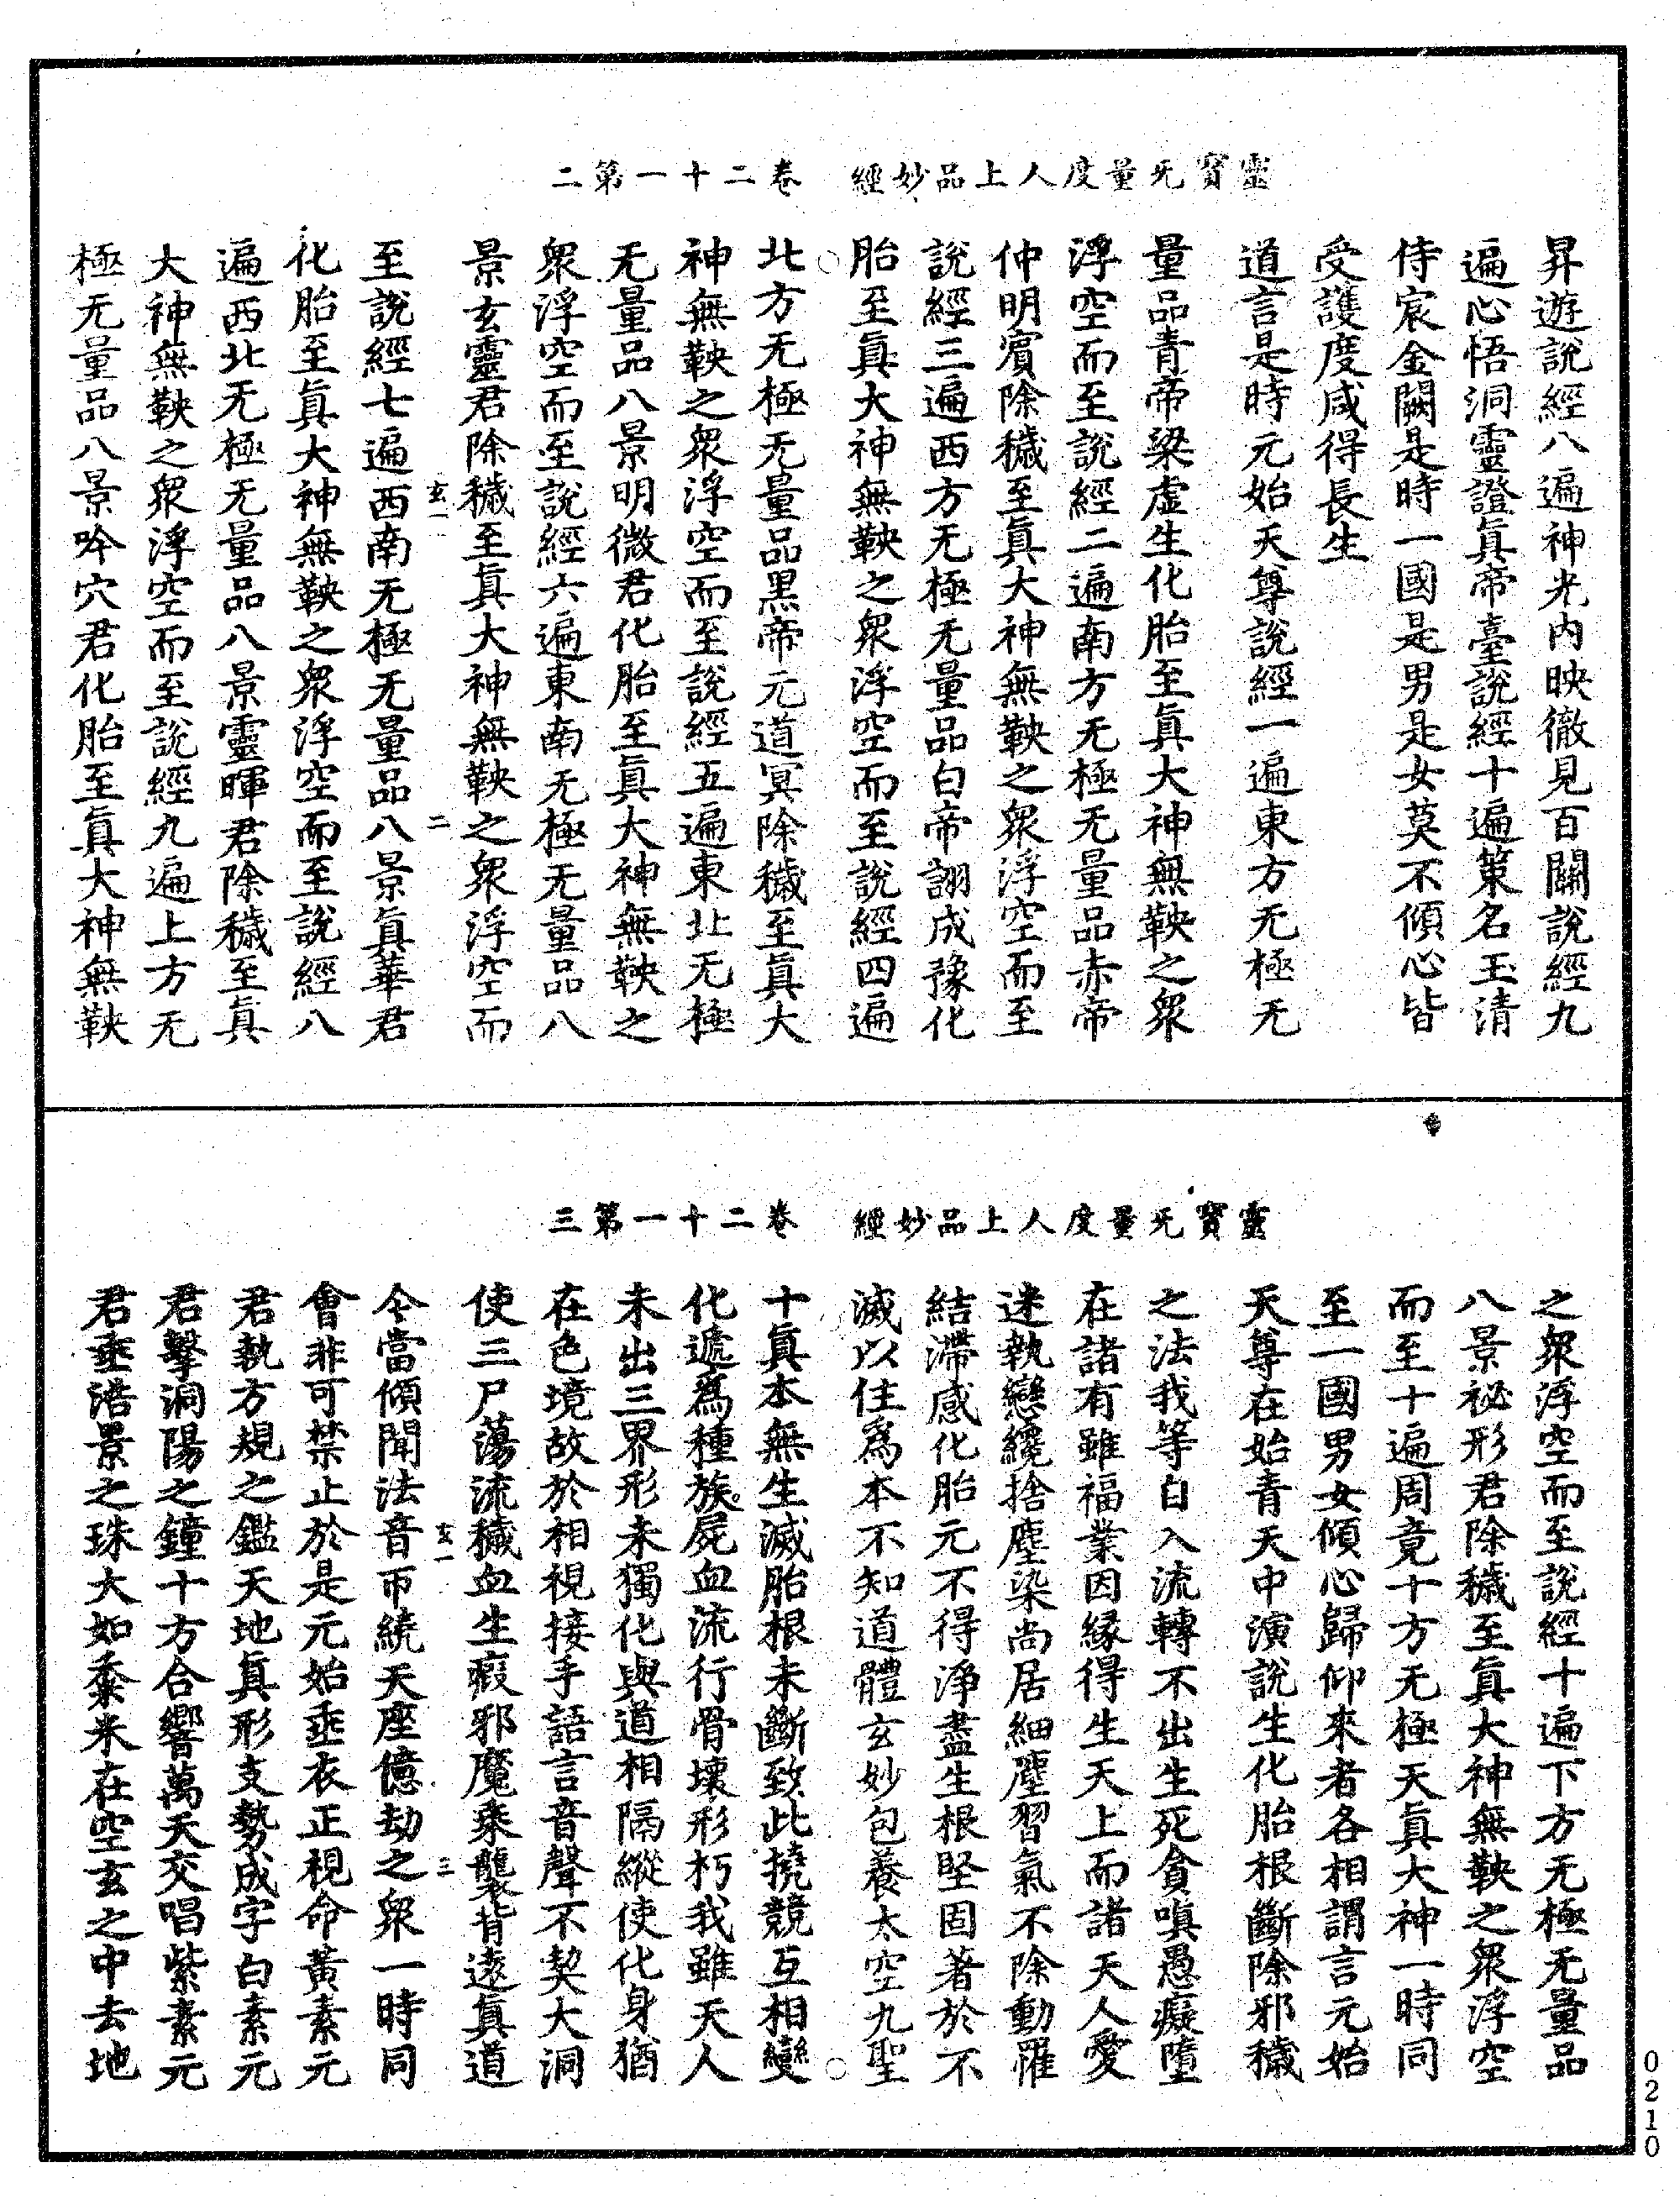 靈寶无量度人上品妙經　卷二十一第二
昇遊說經八遍神光內映徹見百關說經九
遍心悟洞靈證眞帝臺說經十遍策名玉清
侍宸金闕是時一國是男是女莫不傾心皆
受護度咸得長生
道言是時元始天尊說經一遍東方无極无
量品青帝梁虛生化胎至眞大神無鞅之衆
浮空而至說經二遍南方无極无量品赤帝
仲明濱除穢至眞大神無鞅之衆浮空而至
說經三遍西方无極无量品白帝詡成豫化
胎至眞大神無鞅之衆浮空而至說經四遍
北方无極无量品黑帝元道冥除穢至眞大
神無鞅之衆浮空而至說經五遍東北无極
无量品八景明微君化胎至眞大神無鞅之
衆浮空而至說經六遍東南无極无量品八
景玄靈君除穢至眞大神無鞅之衆浮空而
玄一　二
至說經七遍西南无極无量品八景眞華君
化胎至眞大神無鞅之衆浮空而至說經八
遍西北无極无量品八景靈暉君除穢至眞
大神無鞅之衆浮空而至說經九遍上方无
極无量品八景吟穴君化胎至眞大神無鞅
靈寶无量度人上品妙經　卷二十一第三
之衆浮空而至說經十遍下方无極无量品
八景祕形君除穢至眞大神無鞅之衆浮空
而至十遍周竟十方无極天眞大神一時同
至一國男女傾心歸仰來者各相謂言元始
天尊在始青天中演說生化胎根斷除邪穢
之法我等自入流轉不出生死貪嗔愚癡墮
在諸有雖福業因緣得生天上而諸天人愛
迷執戀纔捨塵染尚居細塵習氣不除動罹
結滯感化胎元不得淨盡生根堅固著於不
滅以住爲本不知道體玄妙包養太空九聖
十眞本無生滅胎根未斷致此撓競互相變
化遞爲種族屍血流行骨壞形朽我雖天人
未出三界形未獨化與道相隔縱使化身猶
在色境故於相視接手語言音聲不契大洞
使三尸蕩流穢血生瘕邪魔乘襲背遠眞道
玄一　三
今當傾聞法音帀繞天座億劫之衆一時同
會非可禁止於是元始垂衣正視命黃素元
君執方規之鑑天地眞形支勢成字白素元
君擊洞陽之鐘十方合響萬天交唱紫素元
君垂浩景之珠大如黍米在空玄之中去地
0210